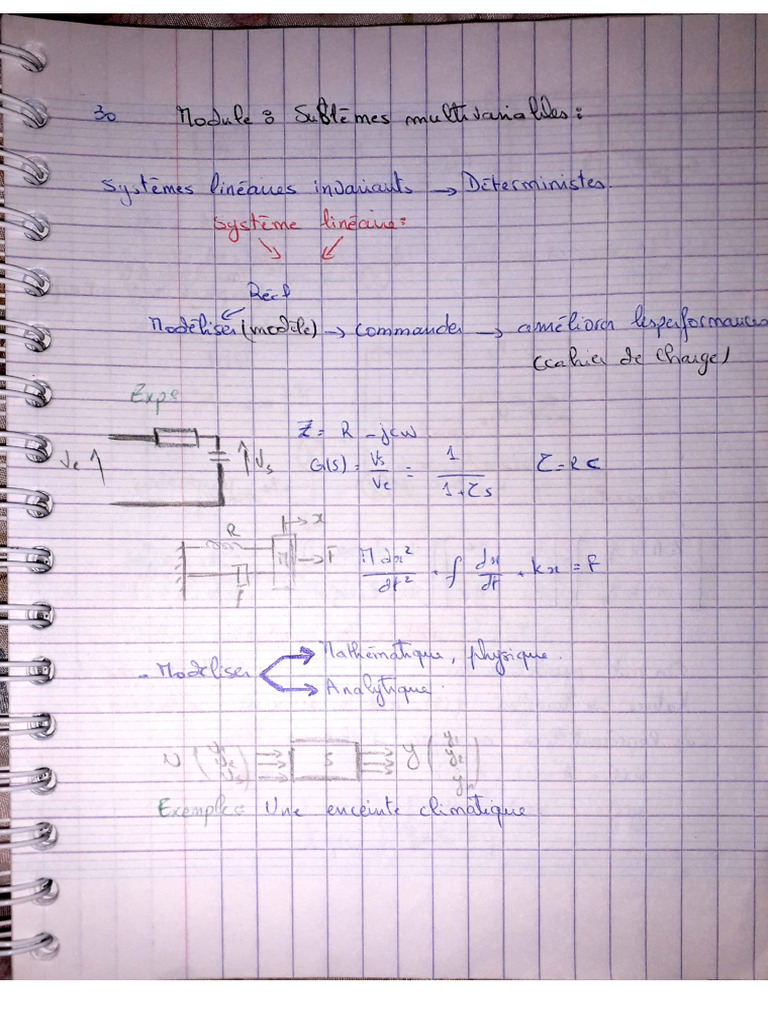 30 Module : Systèmes multivariables :
Systèmes linéaires invariants → Déterministes.
Système linéaire :
Réel
Modéliser (modèle) → commander → améliorer les performances
(cahier de charge)
Exp :
Ve Vs
Z = R - jcw
G(s) = Vs/Ve = 1/(1+τs) τ = RC
R x
M F
f
M dx²/dt² + f dx/dt + kx = F
- Modéliser
Mathématique, physique.
Analytique.
S y (y1 y2 yn)
Exemple : Une enceinte climatique